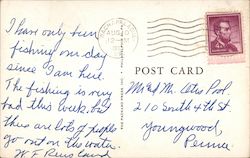 I have only been
fishing one day
since I am here.
The fishing is very
bad this week, but
there are lots of people
go out on the water.
W. F.
AUG
POST CARD
Mr & Mrs.
210 South 4th St.
Youngwood
Penna.